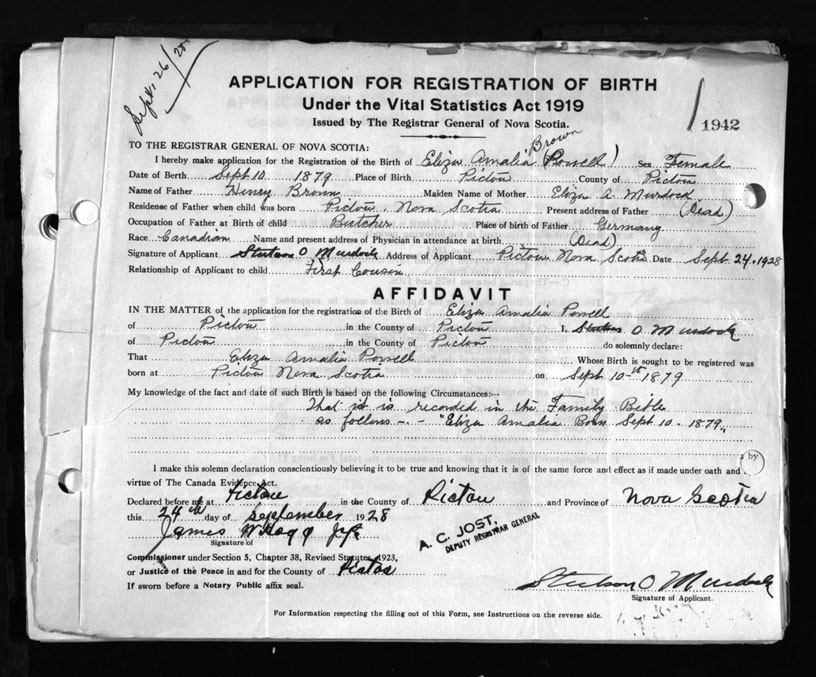 Sept. 26/28
APPLICATION FOR REGISTRATION OF BIRTH
Under the Vital Statistics Act 1919
Issued by The Registrar General of Nova Scotia.
1942
TO THE REGISTRAR GENERAL OF NOVA SCOTIA:
Brown
I hereby make application for the Registration of the Birth of Eliza Amalia (Powell) Sex Female
Date of Birth Sept 10 1879 Place of Birth Pictou County of Pictou
Name of Father Henry Brown Maiden Name of Mother Eliza A. Murdock
Residence of Father when child was born Pictou, Nova Scotia Present address of Father (Dead)
Occupation of Father at Birth of child Butcher Place of birth of Father Germany
Race Canadian Name and present address of Physician in attendance at birth (Dead)
Signature of Applicant O Murdock Address of Applicant Pictou Nova Scotia Date Sept. 24. 1928
Relationship of Applicant to child First Cousin
AFFIDAVIT
IN THE MATTER of the application for the registration of the Birth of Eliza Amalia Powell
of Pictou in the County of Pictou I, O Murdock
of Pictou in the County of Pictou do solemnly declare:
That Eliza Amalia Powell Whose Birth is sought to be registered was
born at Pictou Nova Scotia on Sept 10-th 1879
My knowledge of the fact and date of such Birth is based on the following Circumstances:
That it is recorded in the Family Bible
as follows - - "Eliza Amalia Born Sept 10 - 1879"
I make this solemn declaration conscientiously believing it to be true and knowing that it is of the same force and effect as if made under oath and by
virtue of The Canada Evidence Act.
Declared before me at Pictou in the County of Pictou and Province of Nova Scotia
this 24th day of September 1928
James Jr
Signature of
Commissioner under Section 5, Chapter 38, Revised Statutes, 1923,
or Justice of the Peace in and for the County of Pictou
If sworn before a Notary Public affix seal.
A. C. JOST,
DEPUTY REGISTRAR GENERAL
O Murdock
Signature of Applicant.
For Information respecting the filling out of this Form, see Instructions on the reverse side.